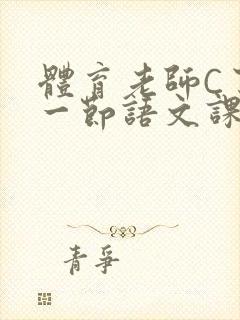 體育老師C
一節語文課
青爭